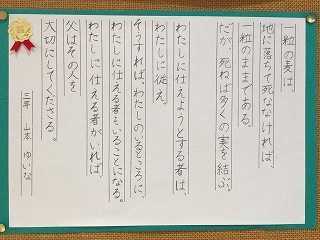 一粒の麦は、
地に落ちて死ななければ、
一粒のままである。
だが、死ねば多くの実を結ぶ。
わたしに仕えようとする者は、
わたしに従え。
そうすればわたしのいるところに、
わたしに仕える者もいることになる。
わたしに仕える者がいれば、
父はその人を
大切にしてくださる。
三年 山本 ゆいな